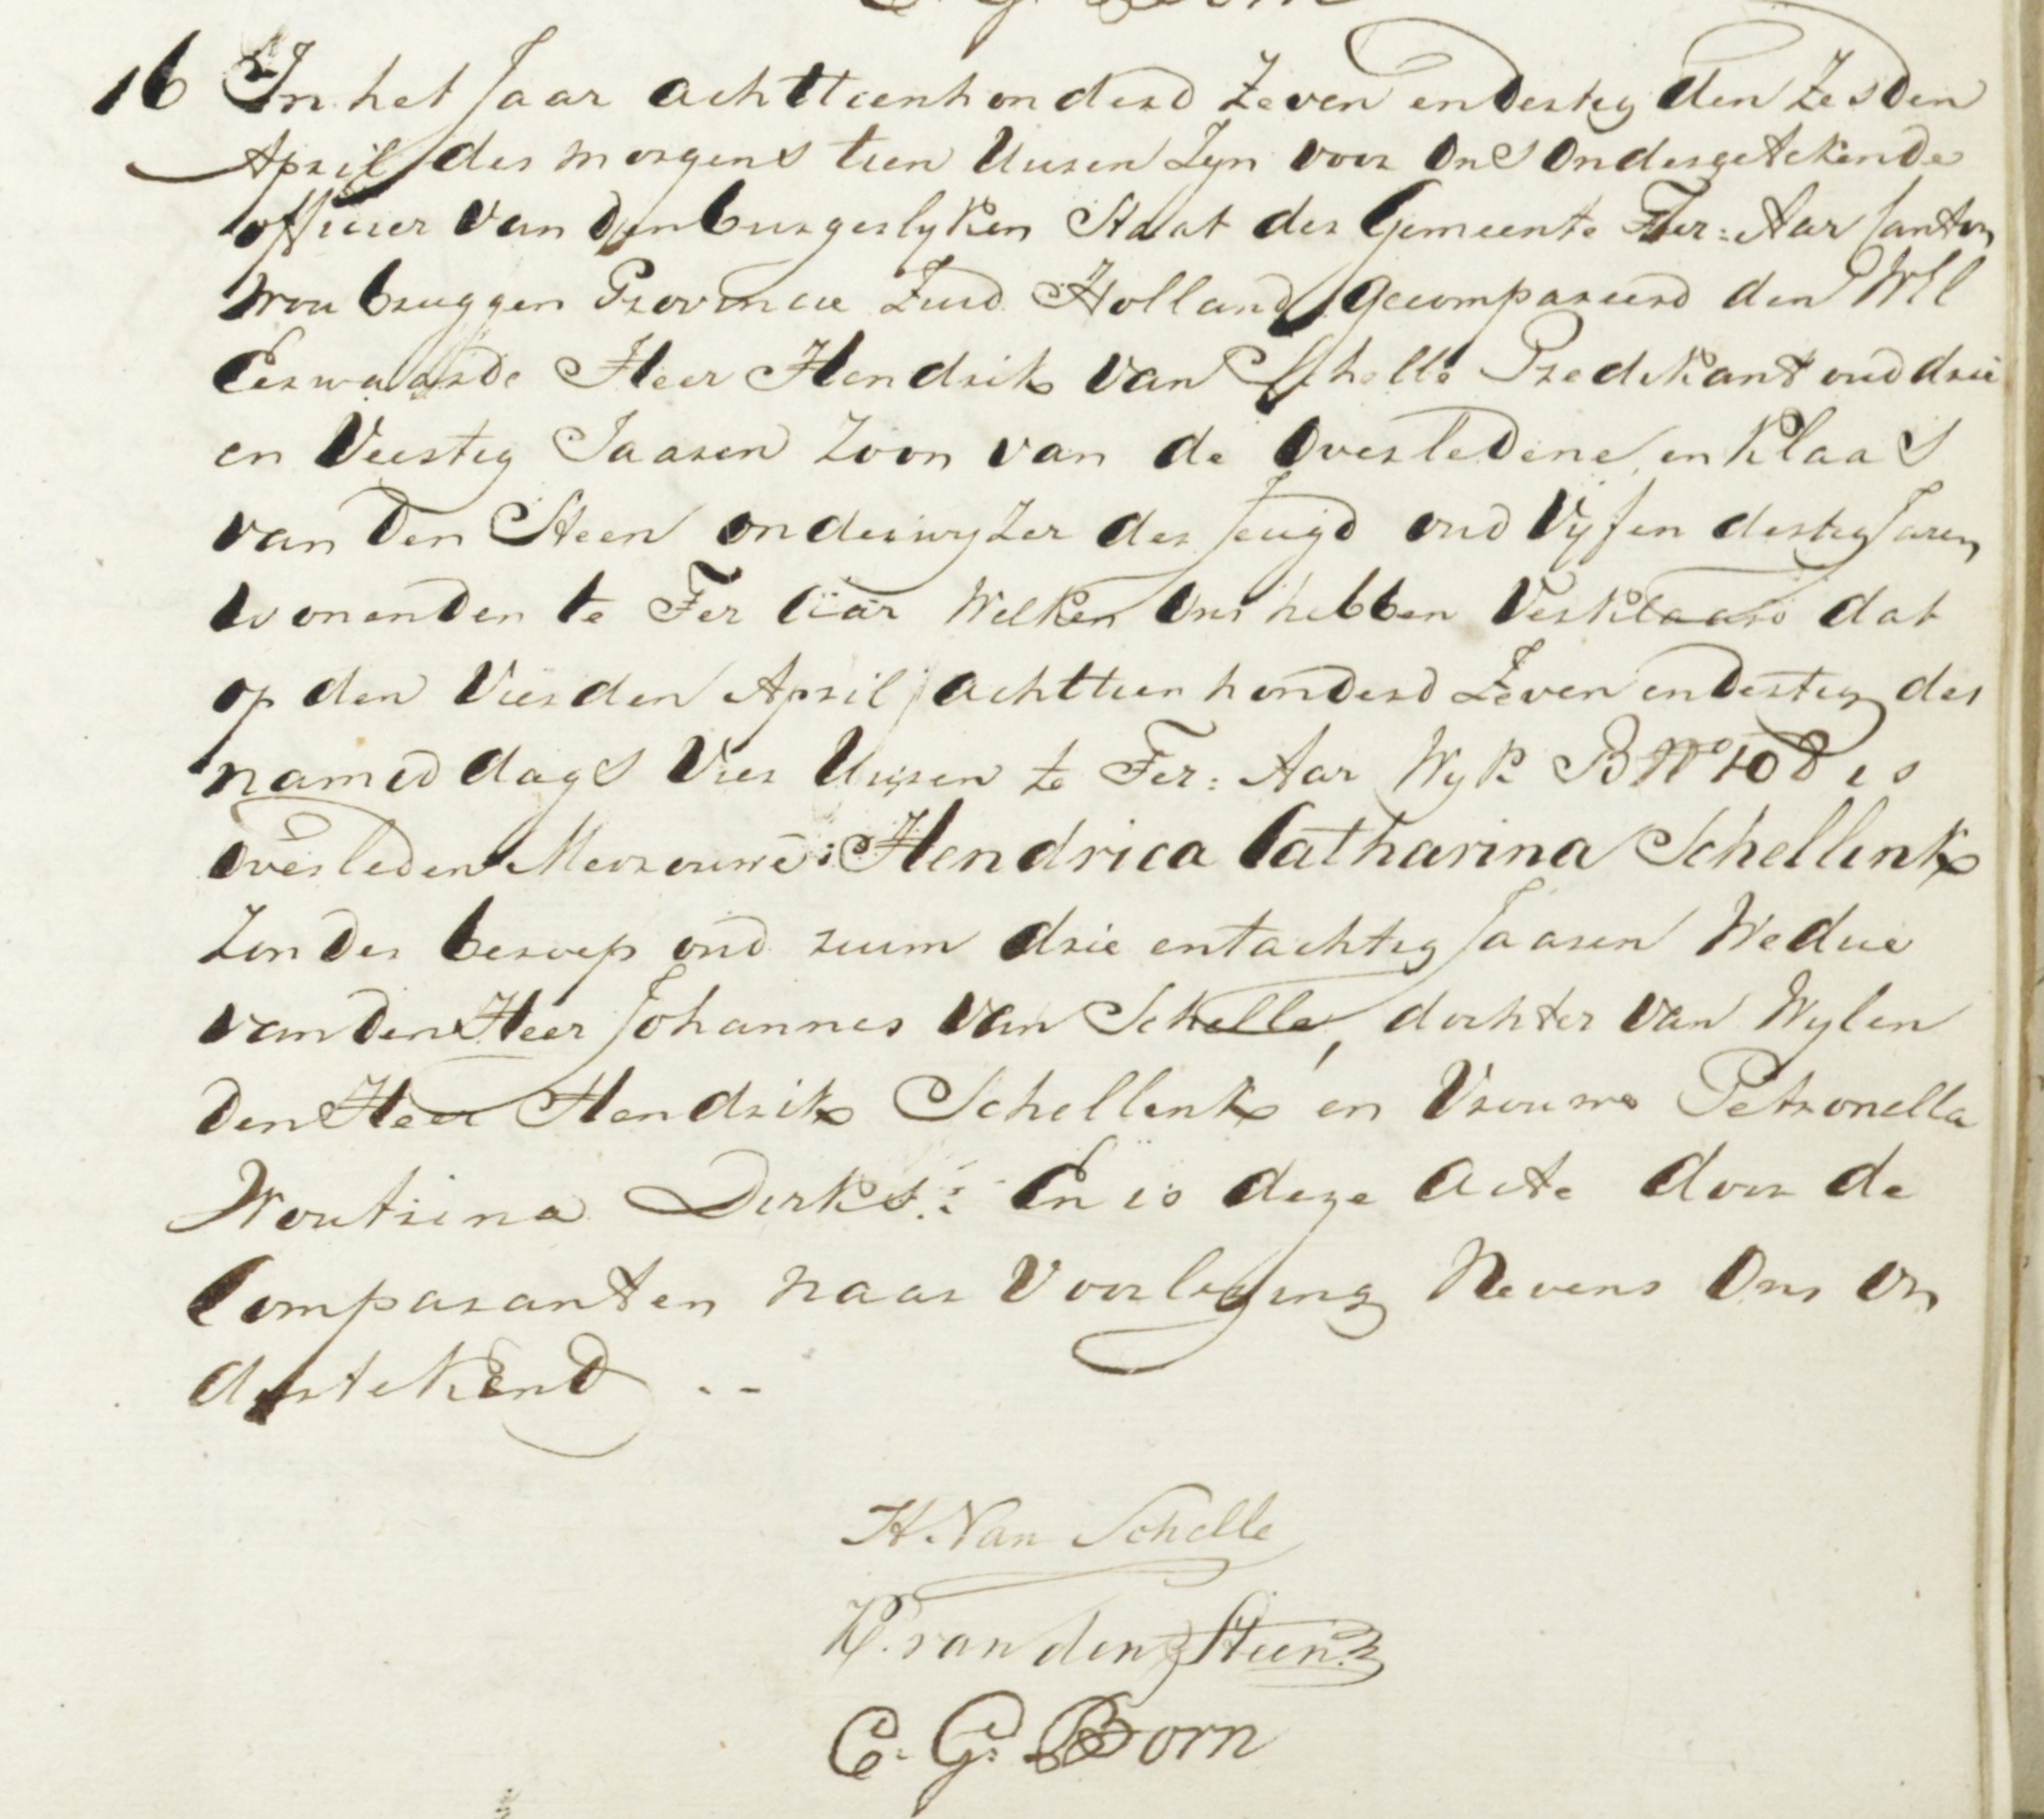 16 In het Jaar achttienhonderd Zeven en dertig den Zesden
April des morgens tien Uuren Zyn voor Ons Ondergetekende
officier van den burgerlyken Staat der Gemeente Ter: Aar Canton
Woubruggen Provincie Zuid Holland gecompareerd den Wel
Eerwaarde Heer Hendrik van Schelle Predikant oud drie
en Veertig Jaaren Zoon van de Overledene en Klaas
van den Steen onderwyzer der Jeugd oud Vyf en dertig Jaren
wonenden te Ter Aar Welken Ons hebben Verklaard dat
op den Vierden April achttien honderd Zeven en dertig des
namiddags Vier Uuren te Ter: Aar Wyk B No is
Overleden Mevrouwe: Hendrica Catharina Schellink
Zonder beroep oud ruim drie en tachtig Jaaren Wedue
van den Heer Johannes van Schelle, dochter van Wylen
den Heer Hendrik Schellink en Vrouwe Petronella
Woutrina Dirks: En is deze Acte door de
Comparanten naar Voorlezing Nevens Ons on
dertekend --
H. Van Schelle
K. van den Steen
C. G. Born